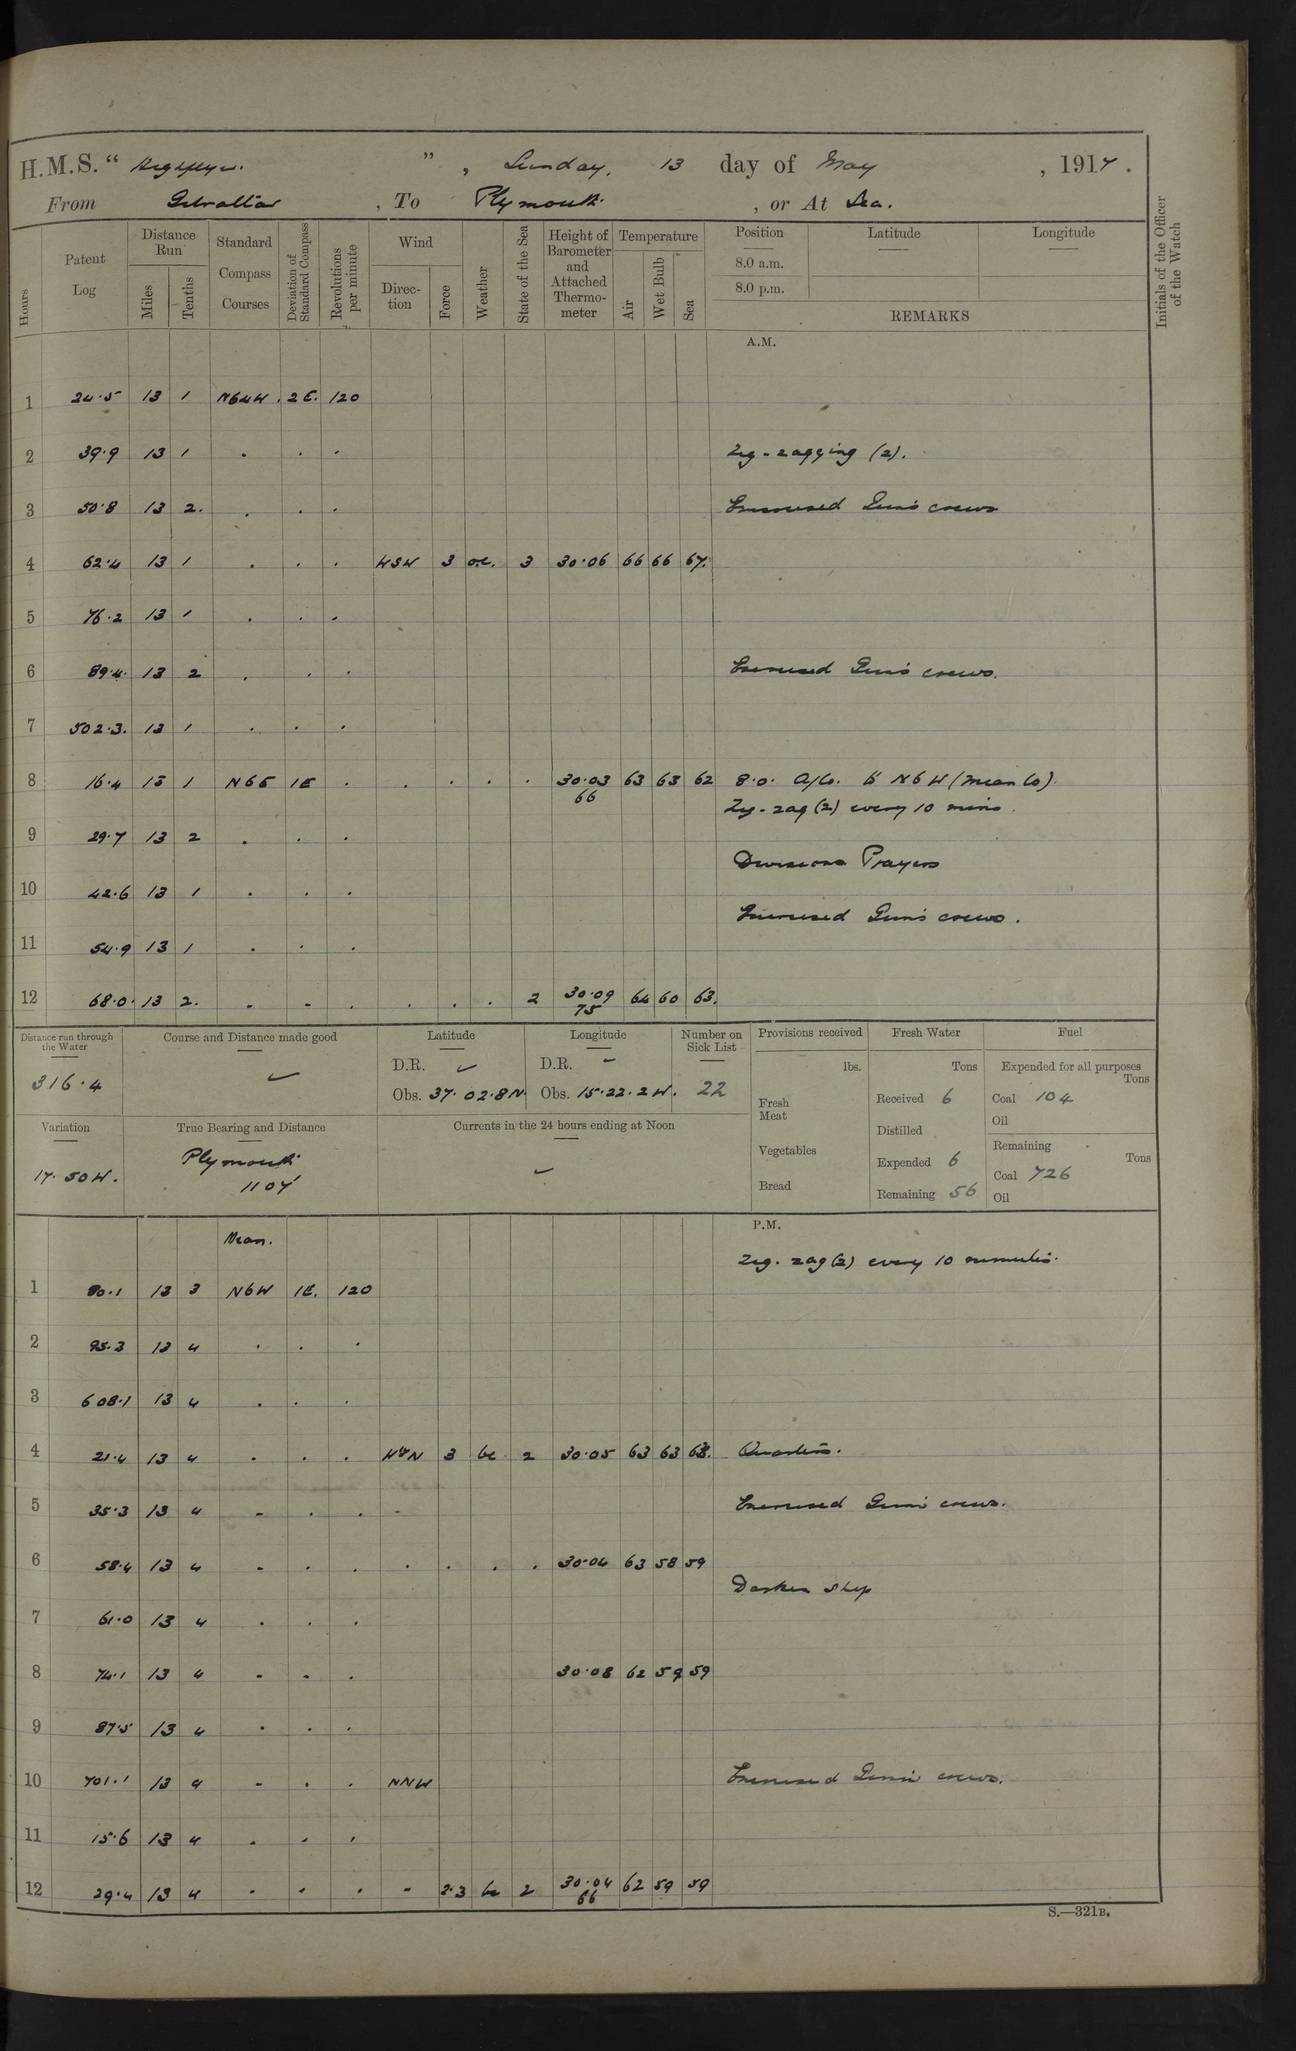 H.M.S. “ Highflyer. ” , Sunday, 13 day of May , 1917 .
From Gibraltar , To Plymouth , or At Sea.
Hours
Patent Log
Distance Run
Miles
Tenths
Standard Compass Courses
Deviation of Standard Compass
Revolutions per minute
Wind
Direction
Force
Weather
State of the Sea
Height of Barometer and Attached Thermometer
Temperature
Air
Wet Bulb
Sea
Position Latitude Longitude
8.0 a.m.
8.0 p.m.
REMARKS
Initials of the Officer of the Watch
A.M.
1 24.5 13 1 N64W. 2E. 120
2 39.9 13 1 . . . Zig-zagging (2).
3 50.8 13 2. . . . Exercised Guns crews
4 62.4 13 1 . . . WSW 3 oc. 3 30.06 66 66 67.
5 76.2 13 1 . . .
6 89.4. 13 2 . . . Exercised Guns crews.
7 502.3. 13 1 . . .
8 16.4 13 1 N6E 1E . . . . . 30.03 66 63 63 62 8.0. A/Co. to N6W (mean Co).
Zig-zag (2) every 10 mins.
9 29.7 13 2 . . .
Divisions Prayers
10 42.6 13 1 . . .
Exercised Guns crews.
11 54.9 13 1 . . .
12 68.0. 13 2. . . . . . . 2 30.09 75 64 60 63.
Distance run through the Water
316.4
Course and Distance made good
Latitude
D.R.
Obs. 37.02.8N.
Longitude
D.R.
Obs. 15.22.2W.
Number on Sick List
22
Provisions received
lbs.
Fresh Meat
Vegetables
Bread
Fresh Water
Tons
Received 6
Distilled
Expended 6
Remaining 56
Fuel
Expended for all purposes
Tons
Coal 104
Oil
Remaining
Tons
Coal 726
Oil
Variation
17.50W.
True Bearing and Distance
Plymouth
1107'
Currents in the 24 hours ending at Noon
P.M.
Mean.
Zig-zag (2) every 10 minutes.
1 80.1 13 3 N6W 1E. 120
2 95.3 13 4 . . .
3 608.1 13 4 . . .
4 21.4 13 4 . . . WbN 3 bc 2 30.05 63 63 63. Quarters.
5 35.3 13 4 . . . . Exercised Guns crews.
6 58.4 13 4 . . . . . . . 30.04 63 58 59
Darken ship
7 61.0 13 4 . . .
8 74.1 13 4 . . . 30.08 62 59 59
9 87.5 13 4 . . .
10 701.1 13 4 . . . NNW Exercised Guns crews.
11 15.6 13 4 . . .
12 29.4 13 4 . . . . 2.3 bc 2 30.04 66 62 59 59
S.—321B.